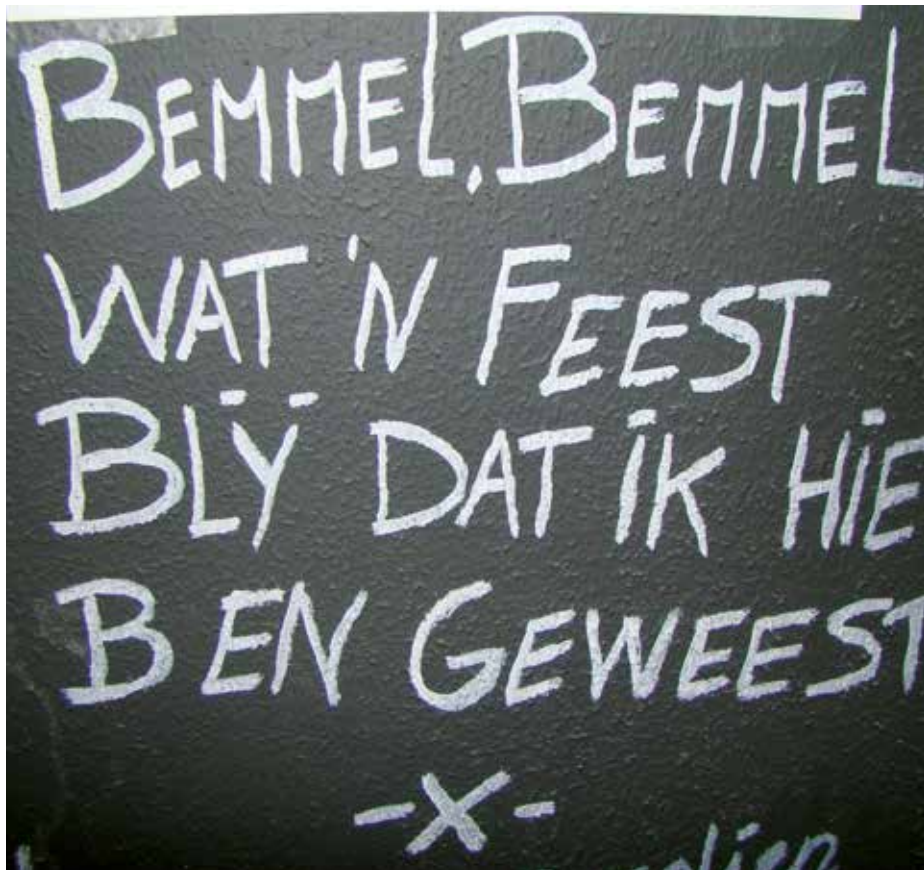 BEMMEL, BEMMEL
WAT 'N FEEST
BLÿ DAT iK HiE
BEN GEWEEST
-X-